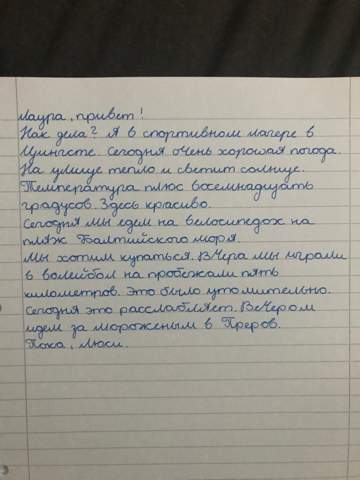 Лаура, привет!
Как дела? Я в спортивном лагере в
Цингсте. Сегодня очень хорошая погода.
На улице тепло и светит солнце.
Температура плюс восемнадцать
градусов. Здесь красиво.
Сегодня мы едем на велосипедох на
пляж Балтийского моря.
Мы хотим купаться. Вчера мы играли
в волейбол на пробежали пять
километров. Это было утомительно.
Сегодня это расслабляет. Вечером
идем за мороженым в Преров.
Пока, Люси.